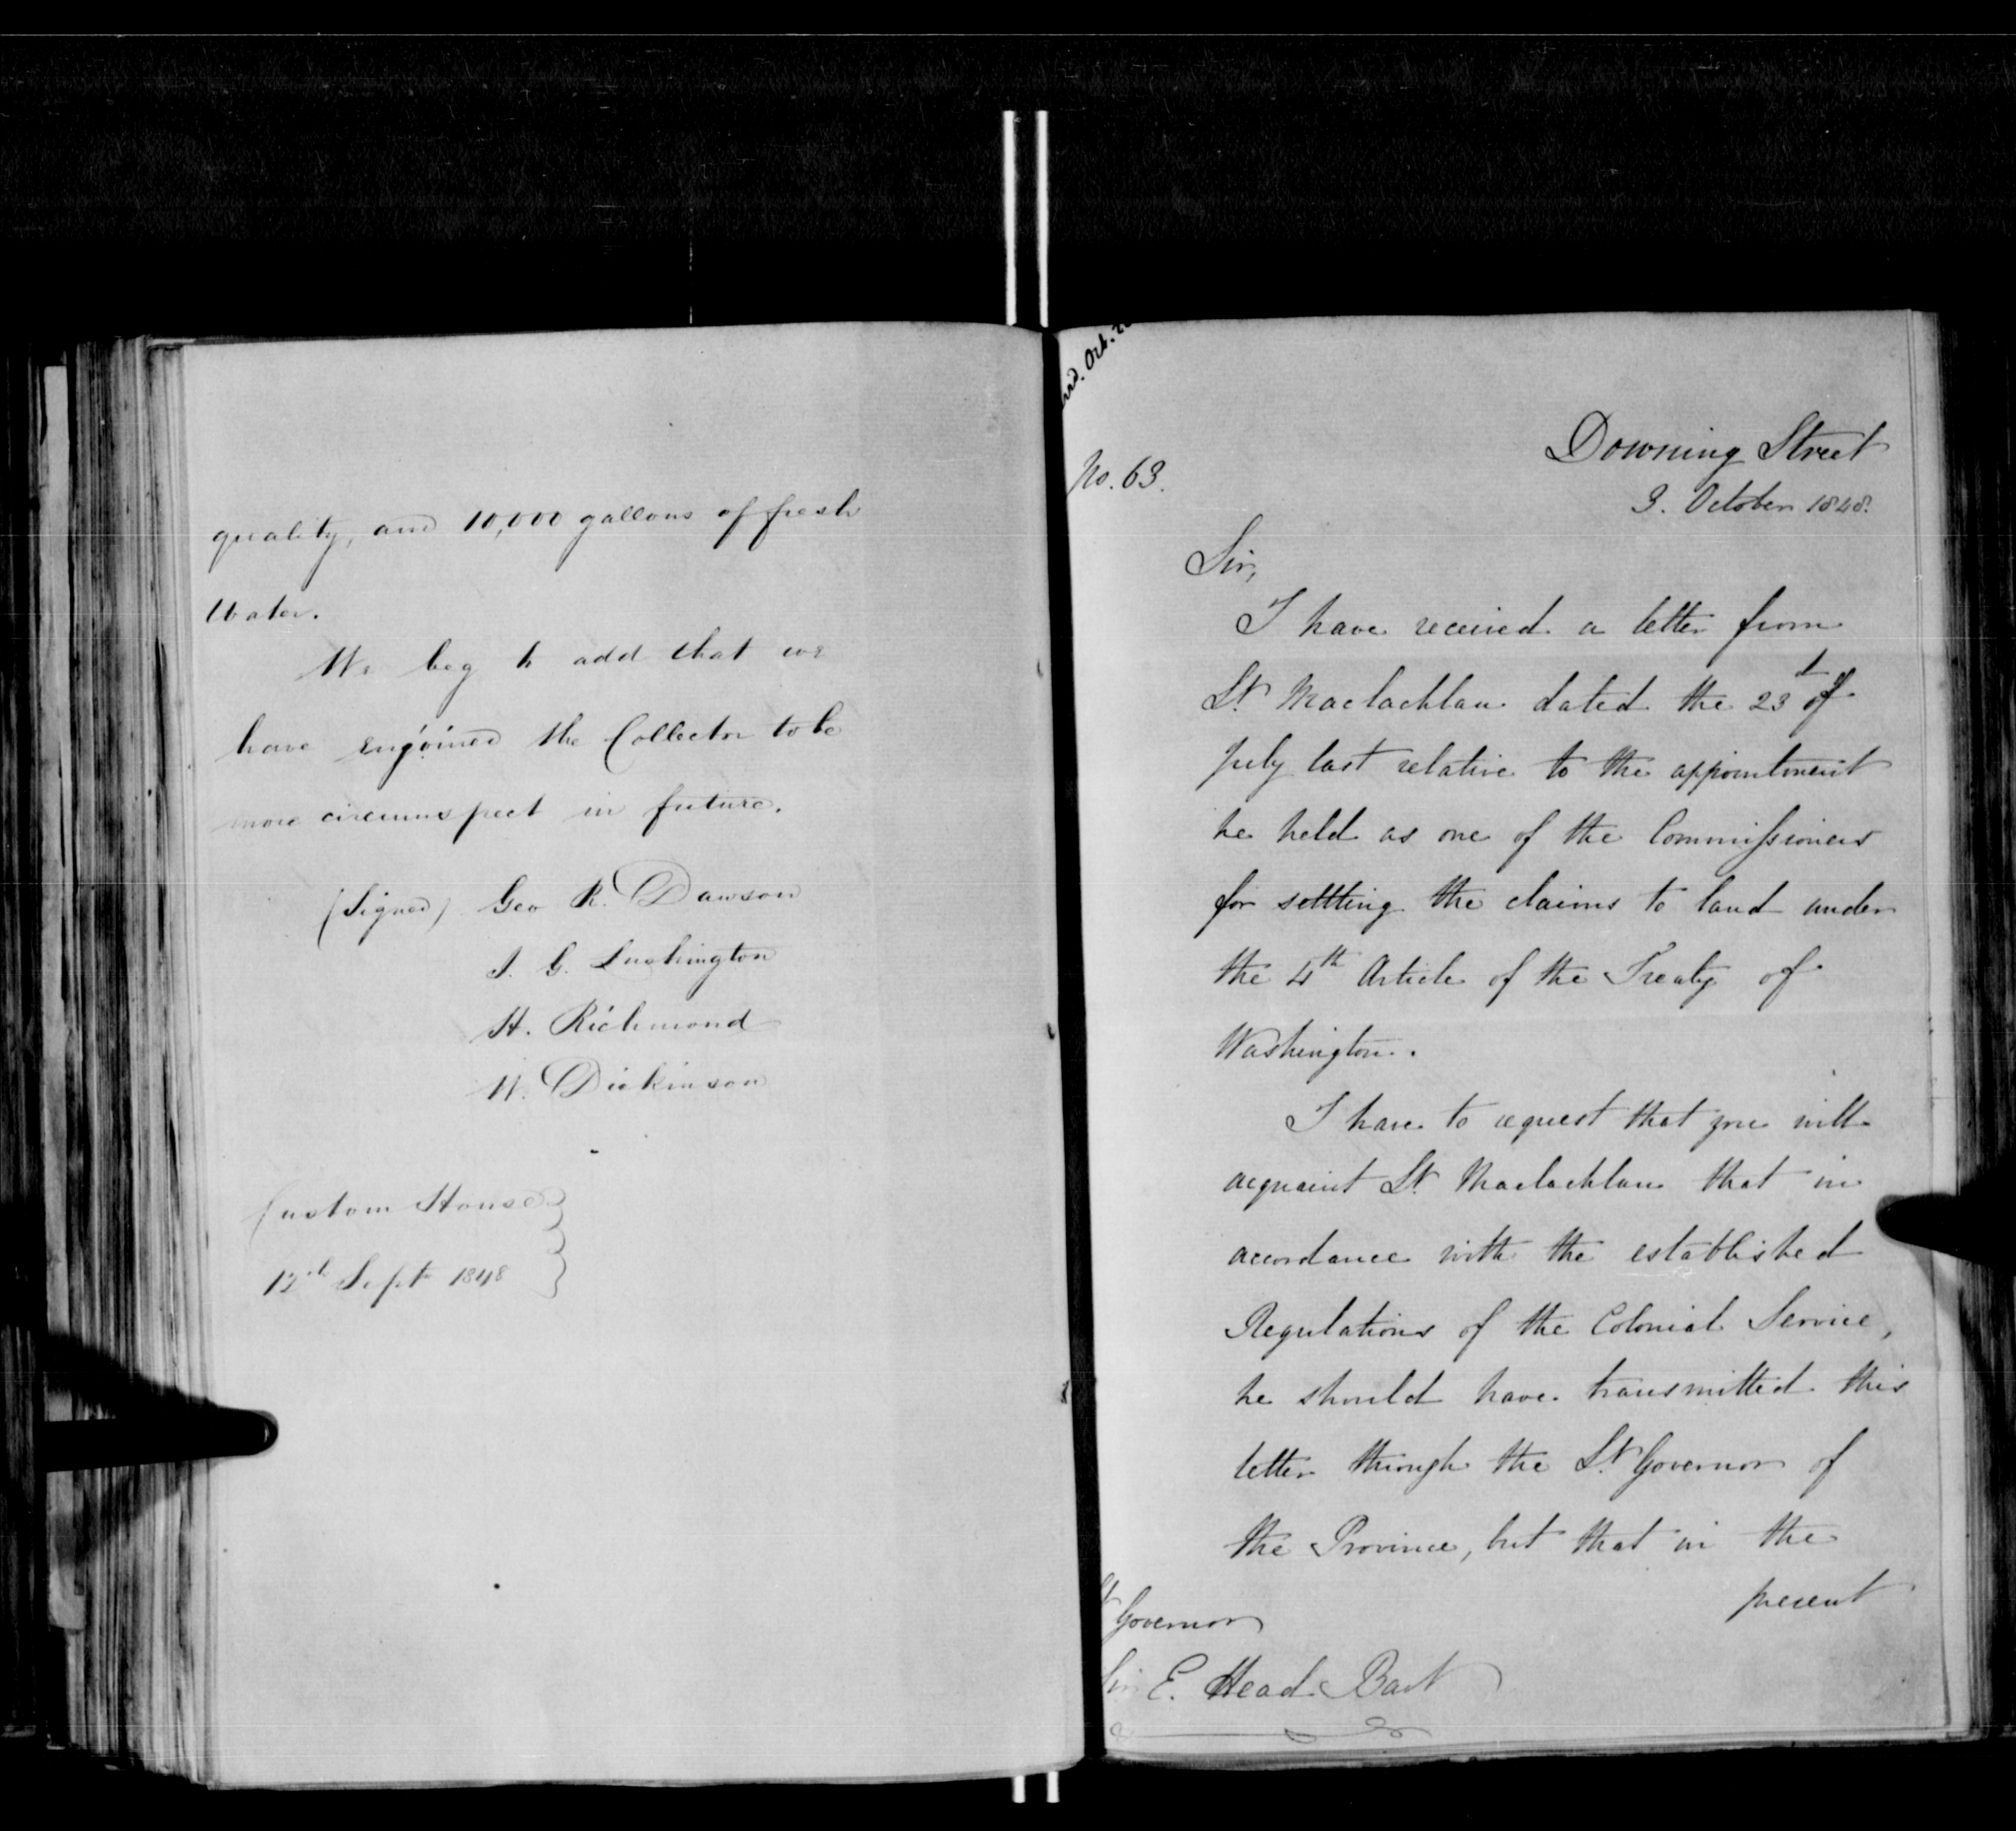 quality, and 10,000 gallons of fresh
Water.
We beg to add that we
have enjoined the Collector to be
more circumspect in future.
(Signed) Geo R. Dawson
S. G. Lushington
H. Richmond
W. Dickinson
Custom House
12th Sept 1848
Recd. Oct.
No. 63.
Downing Street
3. October 1848.
Sir,
I have received a letter from
Lt. Maclachlan dated the 23d of
July last relative to the appointment
he held as one of the Commissioners
for settling the claims to land under
the 4th Article of the Treaty of
Washington.
I have to request that you will
acquaint Lt. Maclachlan that in
accordance with the established
Regulations of the Colonial Service,
he should have transmitted this
letter through the Lt. Governor of
the Province, but that in the
present
Lt Governor
Sir E. Head Bart